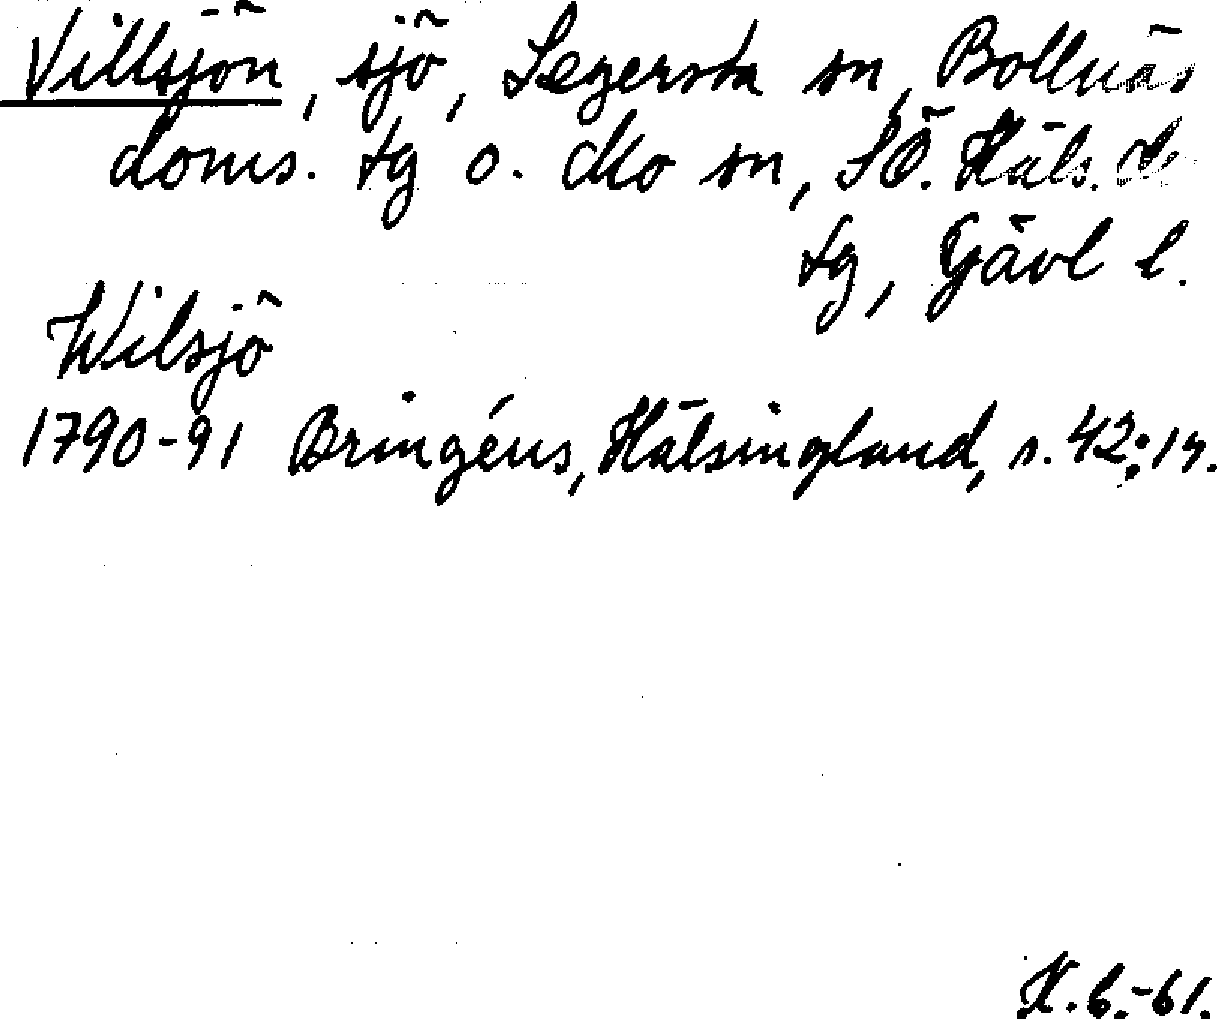 Villsjön, sjö, Segersta sn, Bollnäs
doms. tg o. Mo sn, SÖ. Häls. d.
tg, Gävl l.
Wilsjö
1790-91 Bringéus, Hälsingland, s. 42;
K.b.-61.